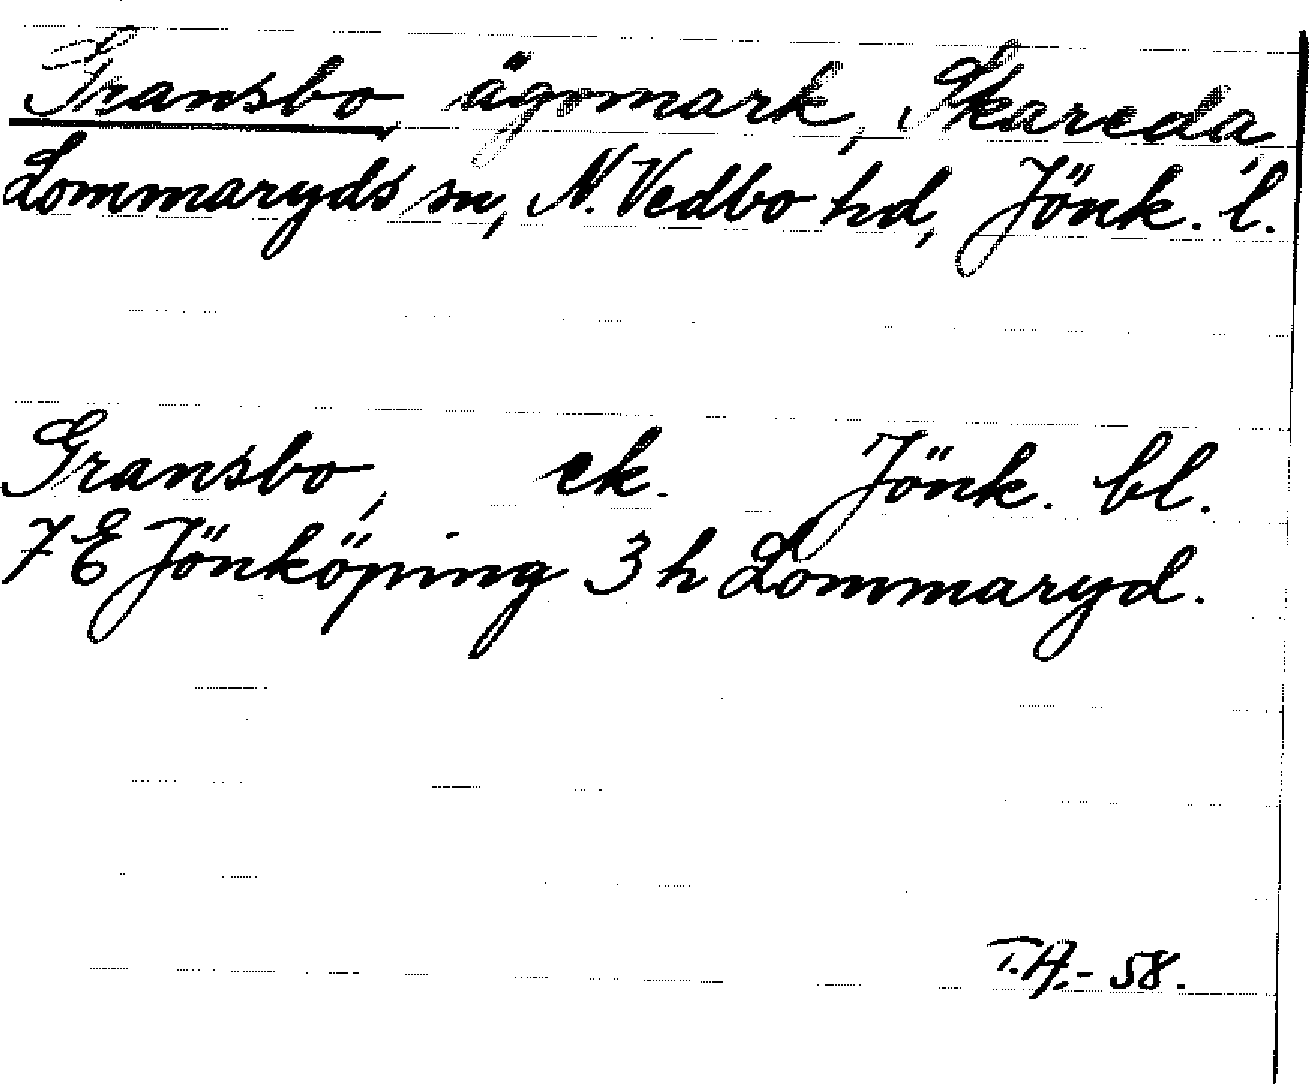 Gransbo, ägomark, Skareda,
Lommaryds sn, N. Vedbo hd, Jönk. l.
Gransbo, ek. Jönk. bl.
7 E Jönköping 3 h Lommaryd.
T.A.- 58.